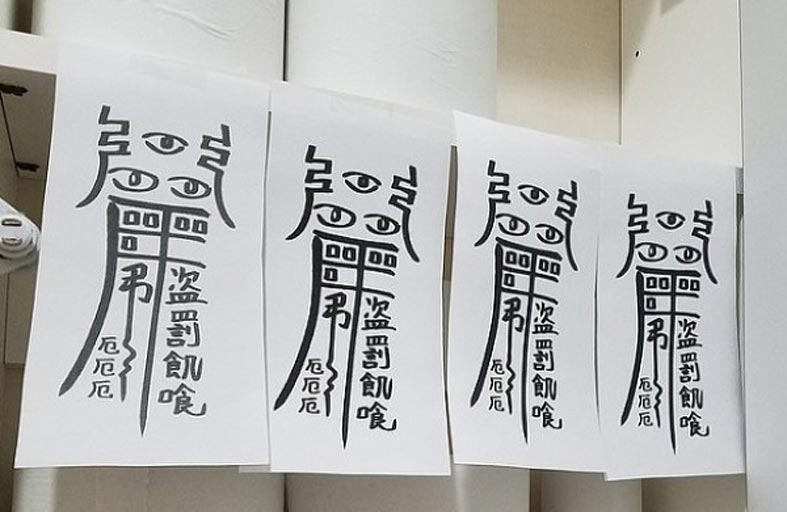 弔
厄
厄
厄
盗罰飢喰
弔
厄
厄
厄
盗罰飢喰
弔
厄
厄
厄
盗罰飢喰
弔
厄
厄
厄
盗罰飢喰